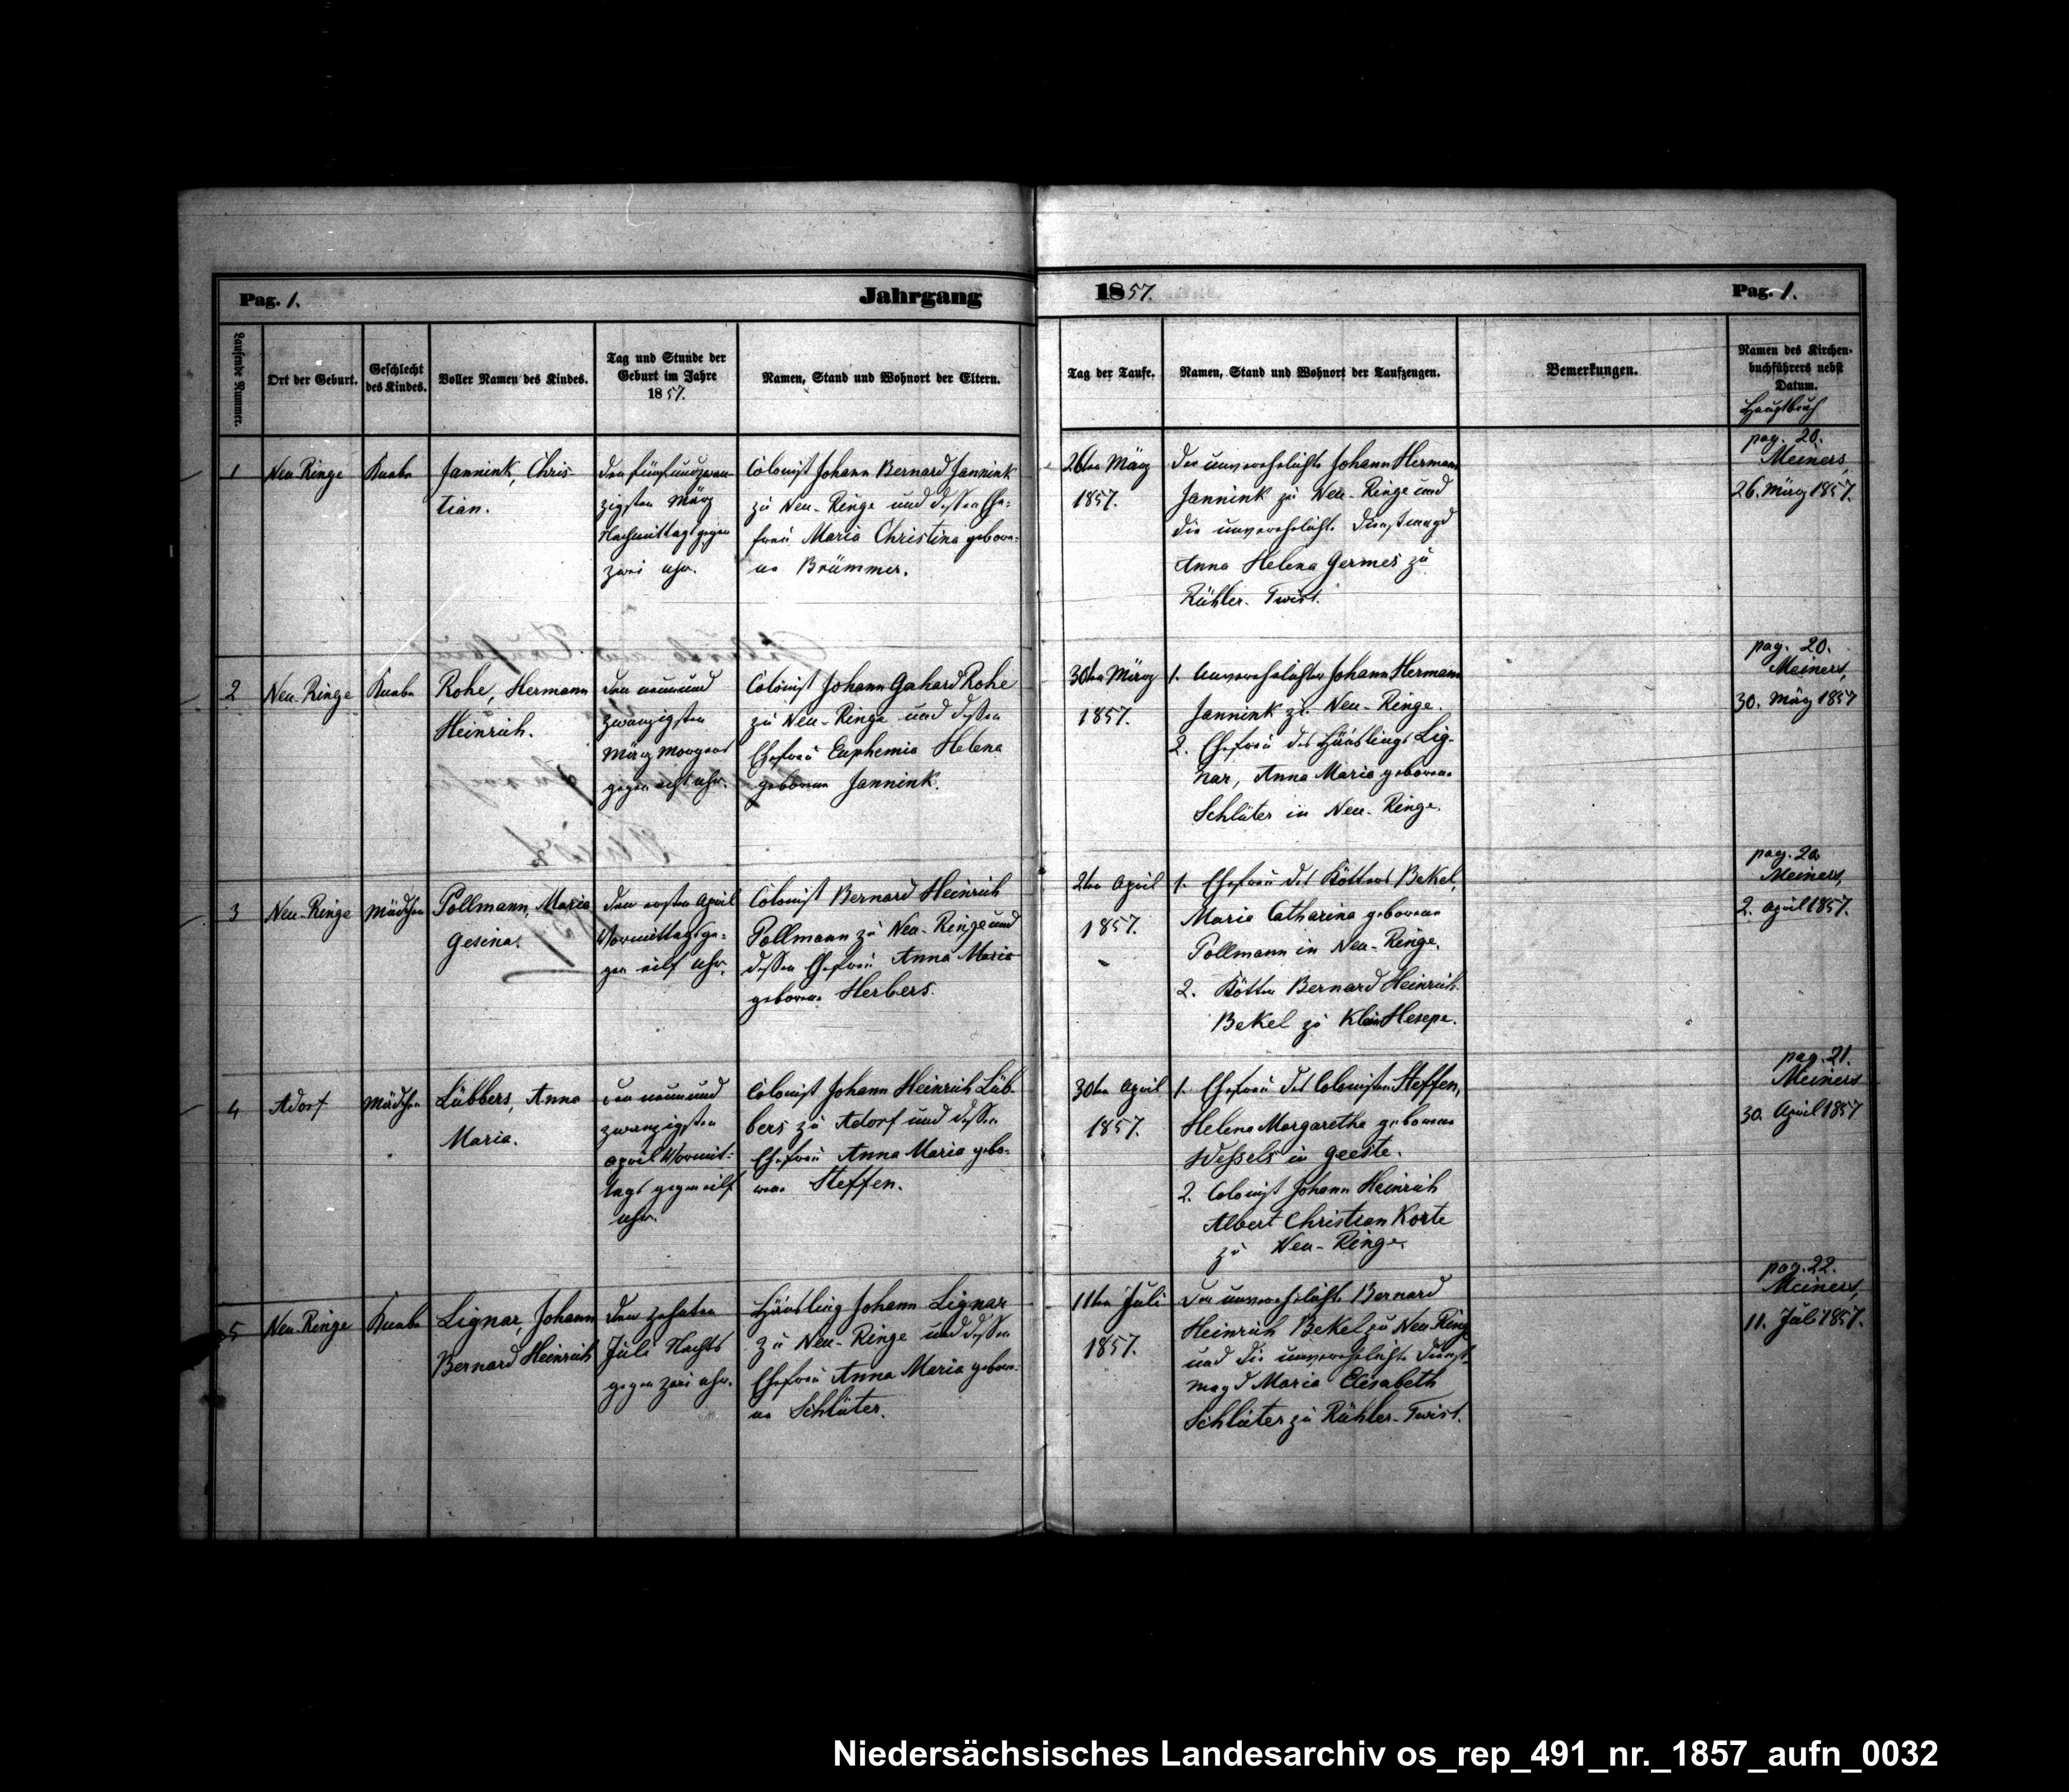 Pag. 1.
Jahrgang
1857.
Pag. 1.
Laufende Nummer.
Ort der Geburt.
Geschlecht
des Kindes.
Voller Namen des Kindes.
Tag und Stunde der
Geburt im Jahre
1857.
Namen, Stand und Wohnort der Eltern.
Tag der Taufe.
Namen, Stand und Wohnort der Taufzeugen.
Bemerkungen.
Namen des Kirchen-
buchführers nebst
Datum.
Hauptbuch
1
Neu-Ringe
Knabe
Jannink, Chris-
tian.
den fünfundzwan-
zigsten März
Nachmittags gegen
zwei Uhr.
Colonist Johann Bernard Jannink
zu Neu-Ringe und dessen Ehe-
frau Maria Christina gebore-
ne Brümmer.
26ten März
1857.
Der unverehelichte Johann Hermann
Jannink zu Neu-Ringe und
die unverehelichte Dienstmagd
Anna Helena Germes zu
Rühler-Twist.
pag. 20.
Meiners,
26. März 1857.
2
Neu-Ringe
Knabe
Rohe, Hermann
Heinrich.
den neunund
zwanzigsten
März Morgens
gegen acht Uhr.
Colonist Johann Gerhard Rohe
zu Neu-Ringe und dessen
Ehefrau Euphemia Helena
geborene Jannink.
30ten März
1857.
1. Unverehelichter Johann Hermann
Jannink zu Neu-Ringe.
2. Ehefrau des Häuslings Lig-
nar, Anna Maria geborene
Schlüter in Neu-Ringe.
pag. 20.
Meiners,
30. März 1857
3
Neu-Ringe
Mädchen
Pollmann, Maria
Gesina.
den ersten April
Vormittags ge-
gen eilf Uhr.
Colonist Bernard Heinrich
Pollmann zu Neu-Ringe und
dessen Ehefrau Anna Maria
geborene Herbers.
2ten April
1857.
1. Ehefrau des Kötters Bekel,
Maria Catharina geborene
Pollmann in Neu-Ringe.
2. Kötter Bernard Heinrich
Bekel zu Klein Hesepe.
pag. 20
Meiners,
2. April 1857.
4
Adorf
Mädchen
Lübbers, Anna
Maria.
den neunund
zwanzigsten
April Vormit-
tags gegen eilf
Uhr.
Colonist Johann Heinrich Lüb-
bers zu Adorf und dessen
Ehefrau Anna Maria gebo-
rene Steffen.
30ten April
1857.
1. Ehefrau des Colonisten Steffen,
Helena Margaretha geborene
Wessels in Geeste.
2. Colonist Johann Heinrich
Albert Christian Korte
zu Neu-Ringe.
pag. 21.
Meiners
30. April 1857
5
Neu-Ringe
Knabe
Lignar, Johann
Bernard Heinrich
den zehnten
Juli Nachts
gegen zwei Uhr.
Häusling Johann Lignar
zu Neu-Ringe und dessen
Ehefrau Anna Maria gebore-
ne Schlüter.
11ten Juli
1857.
Der unverehelichte Bernard
Heinrich Bekel zu Neu Ringe
und die unverehelichte Dienst-
magd Maria Elisabeth
Schlüter zu Rühler-Twist.
pag. 22.
Meiners,
11. Juli 1857.
Niedersächsisches Landesarchiv os_rep_491_nr._1857_aufn_0032